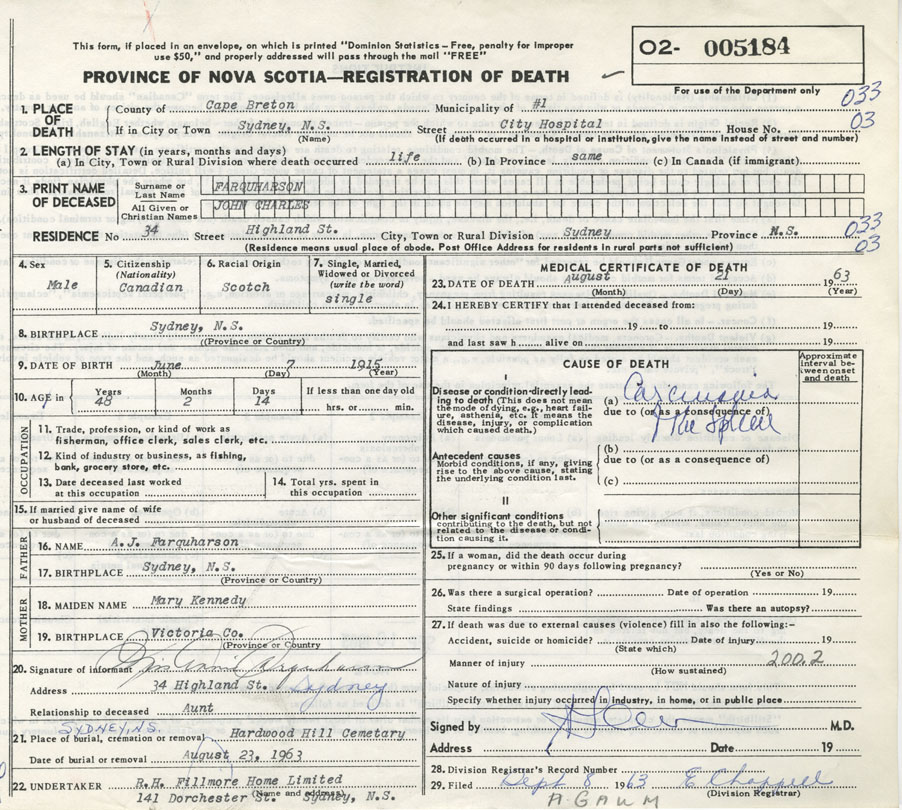 This form, if placed in an envelope, on which is printed "Dominion Statistics – Free, penalty for improper
use $50," and properly addressed will pass through the mail "FREE"
O2- 005184
PROVINCE OF NOVA SCOTIA—REGISTRATION OF DEATH
For use of the Department only
033
03
1. PLACE OF DEATH
County of Cape Breton Municipality of #1
If in City or Town Sydney, N.S. Street City Hospital House No.
(Name) (If death occurred in a hospital or institution, give the name instead of street and number)
2. LENGTH OF STAY (in years, months and days)
(a) In City, Town or Rural Division where death occurred life (b) In Province same (c) In Canada (if immigrant)
3. PRINT NAME OF DECEASED
Surname or Last Name FARQUHARSON
All Given or Christian Names JOHN CHARLES
RESIDENCE No 34 Street Highland St. City, Town or Rural Division Sydney Province N.S.
033
03
(Residence means usual place of abode. Post Office Address for residents in rural parts not sufficient)
4. Sex
Male
5. Citizenship (Nationality)
Canadian
6. Racial Origin
Scotch
7. Single, Married, Widowed or Divorced (write the word)
single
8. BIRTHPLACE Sydney, N.S.
(Province or Country)
9. DATE OF BIRTH June 7 1915
(Month) (Day) (Year)
10. AGE in Years 48 Months 2 Days 14
If less than one day old
hrs. or min.
OCCUPATION
11. Trade, profession, or kind of work as
fisherman, office clerk, sales clerk, etc.
12. Kind of industry or business, as fishing,
bank, grocery store, etc.
13. Date deceased last worked
at this occupation
14. Total yrs. spent in
this occupation
15. If married give name of wife
or husband of deceased
FATHER
16. NAME A.J. Farquharson
17. BIRTHPLACE Sydney, N.S.
(Province or Country)
MOTHER
18. MAIDEN NAME Mary Kennedy
19. BIRTHPLACE Victoria Co.
(Province or Country)
20. Signature of informant Annie Farquharson
Address 34 Highland St. Sydney
Relationship to deceased Aunt
SYDNEY, N.S.
21. Place of burial, cremation or removal Hardwood Hill Cemetary
Date of burial or removal August 23, 1963
22. UNDERTAKER R.H. Fillmore Home Limited
(Name and address)
141 Dorchester St. Sydney, N.S.
MEDICAL CERTIFICATE OF DEATH
23. DATE OF DEATH August 21 1963
(Month) (Day) (Year)
24. I HEREBY CERTIFY that I attended deceased from:
19 to 19
and last saw h alive on 19
CAUSE OF DEATH
Approximate interval between onset and death
I
Disease or condition directly leading to death (This does not mean the mode of dying, e.g., heart failure, asthenia, etc. It means the disease, injury, or complication which caused death.)
(a) Carcinoma
due to (or as a consequence of)
the Spleen
Antecedent causes
Morbid conditions, if any, giving rise to the above cause, stating the underlying condition last.
(b)
due to (or as a consequence of)
(c)
II
Other significant conditions
contributing to the death, but not related to the disease or condition causing it.
25. If a woman, did the death occur during
pregnancy or within 90 days following pregnancy?
(Yes or No)
26. Was there a surgical operation? Date of operation 19
State findings Was there an autopsy?
27. If death was due to external causes (violence) fill in also the following:–
Accident, suicide or homicide? Date of injury 19
(State which)
Manner of injury 200.2
(How sustained)
Nature of injury
Specify whether injury occurred in industry, in home, or in public place
Signed by M.D.
Address Date 19
28. Division Registrar's Record Number
29. Filed Sept 8 1963 E Chappell
(Division Registrar)
A. GAUM